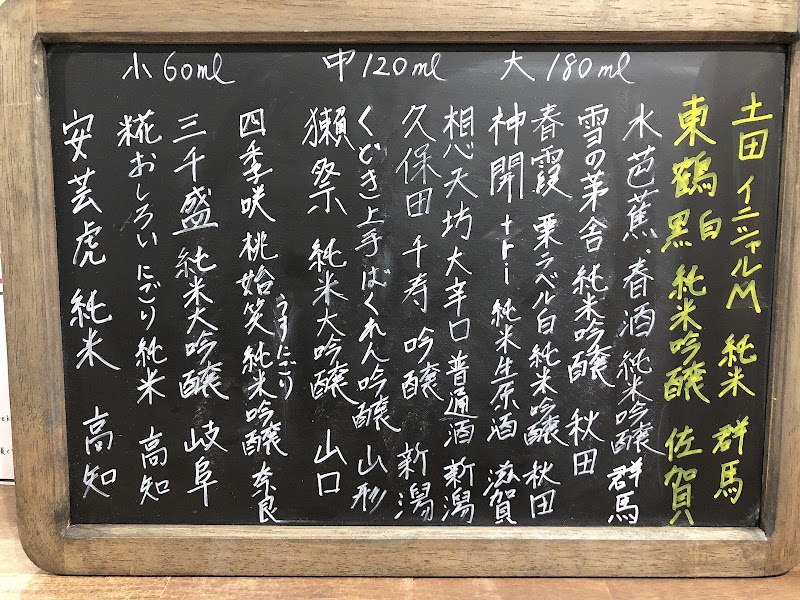 小60ml 中120ml 大180ml
土田 イニシャルM 純米 群馬
東鶴 黒白 純米吟醸 佐賀
水芭蕉 春酒 純米吟醸 群馬
雪の茅舎 純米吟醸 秋田
春霞 栗ラベル白 純米吟醸 秋田
神開 +トー 純米生原酒 滋賀
想天坊 大辛口 普通酒 新潟
久保田 千寿 吟醸 新潟
くどき上手 ばくれん吟醸 山形
獺祭 純米大吟醸 山口
四季咲 桃始笑 うすにごり 純米吟醸 奈良
三千盛 純米大吟醸 岐阜
糀おしろい にごり 純米 高知
安芸虎 純米 高知